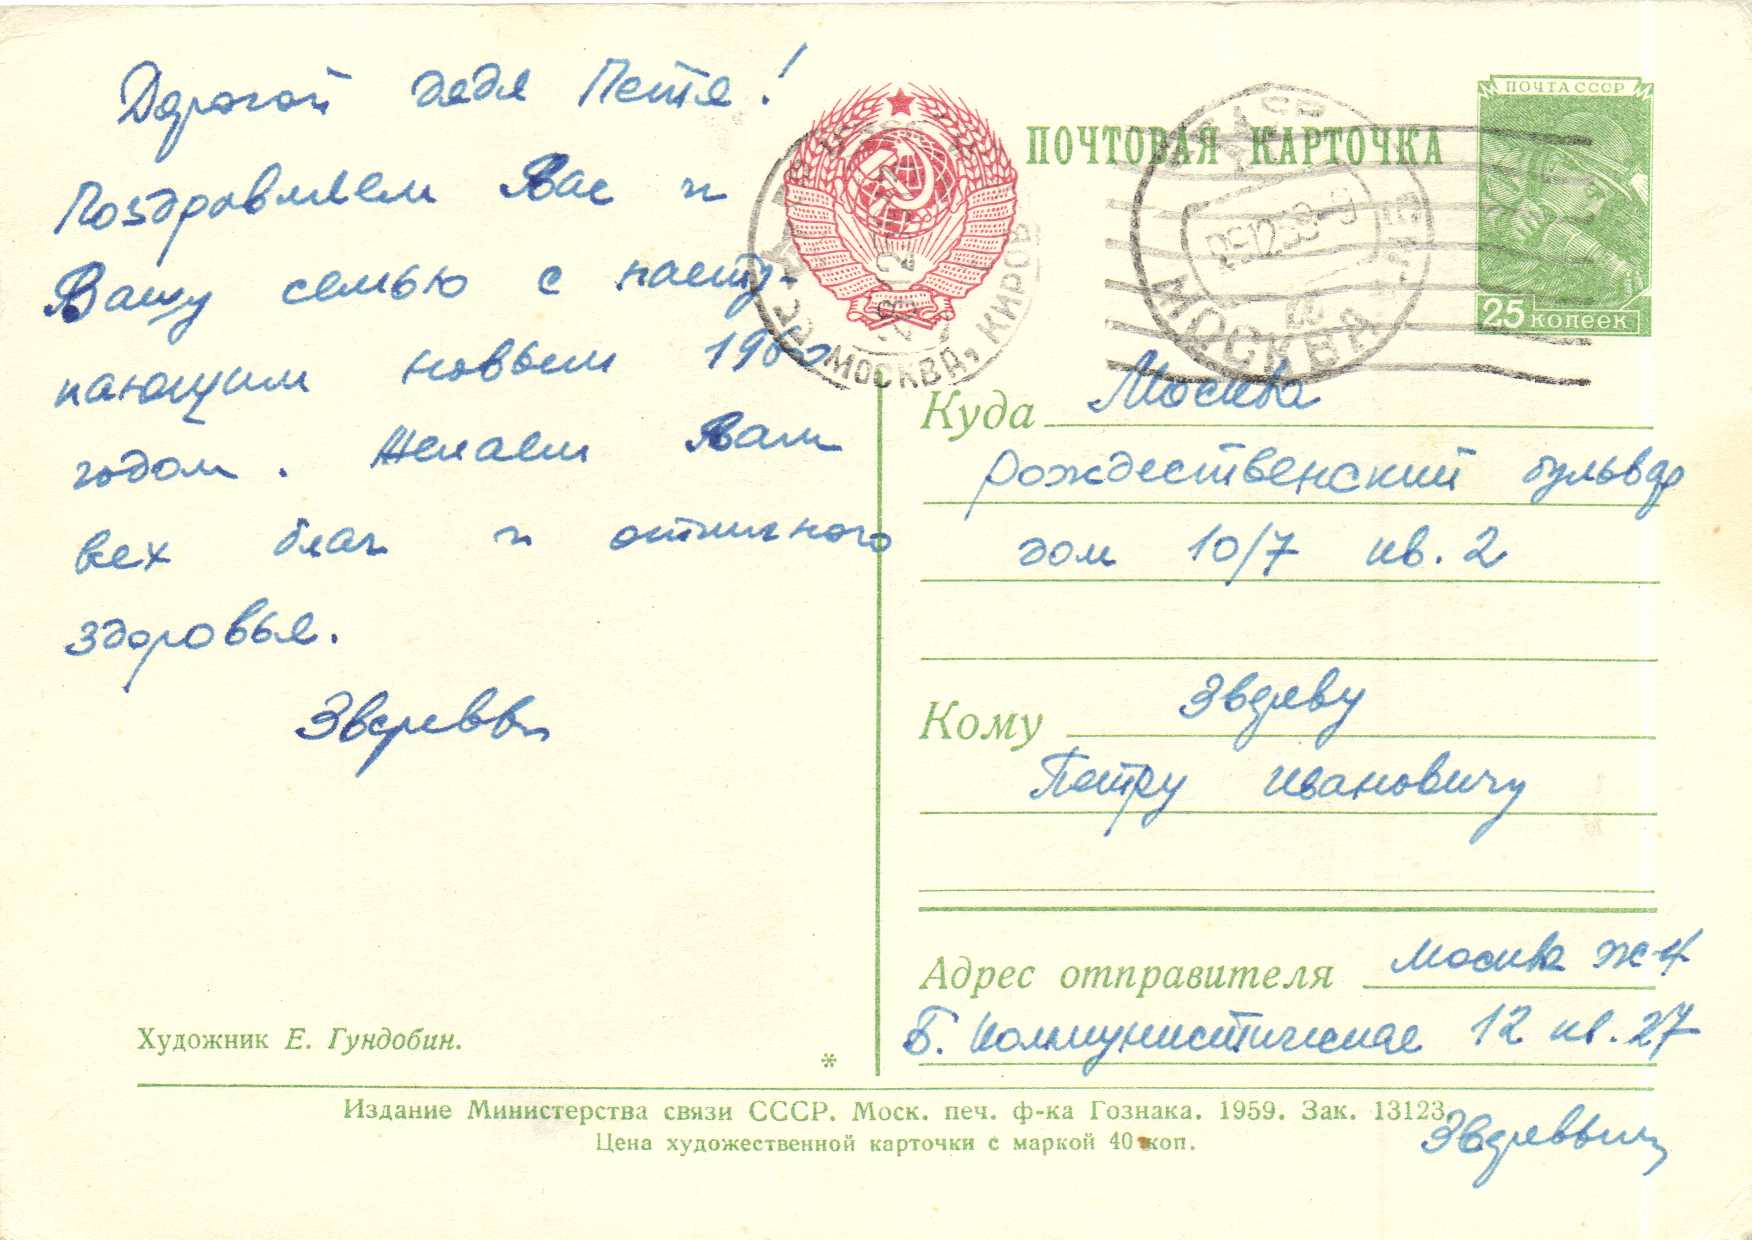 Дорогой дядя Петя!
Поздравляем Вас и
Вашу семью с насту-
пающим новым 1960
годом. Желаем Вам
всех благ и отличного
здоровья.
Зверевы
Художник Е. Гундобин.
*
ПОЧТОВАЯ КАРТОЧКА
ПОЧТА СССР
25 копеек
МОСКВА, КИРОВ
МОСКВА
25 12 59
Куда Москва
Рождественский бульвар
дом 10/7 кв. 2
Кому Звереву
Петру Ивановичу
Адрес отправителя Москва Ж-4
Б. Коммунистическая 12 кв. 27
Издание Министерства связи СССР. Моск. печ. ф-ка Гознака. 1959. Зак. 13123.
Цена художественной карточки с маркой 40 коп.